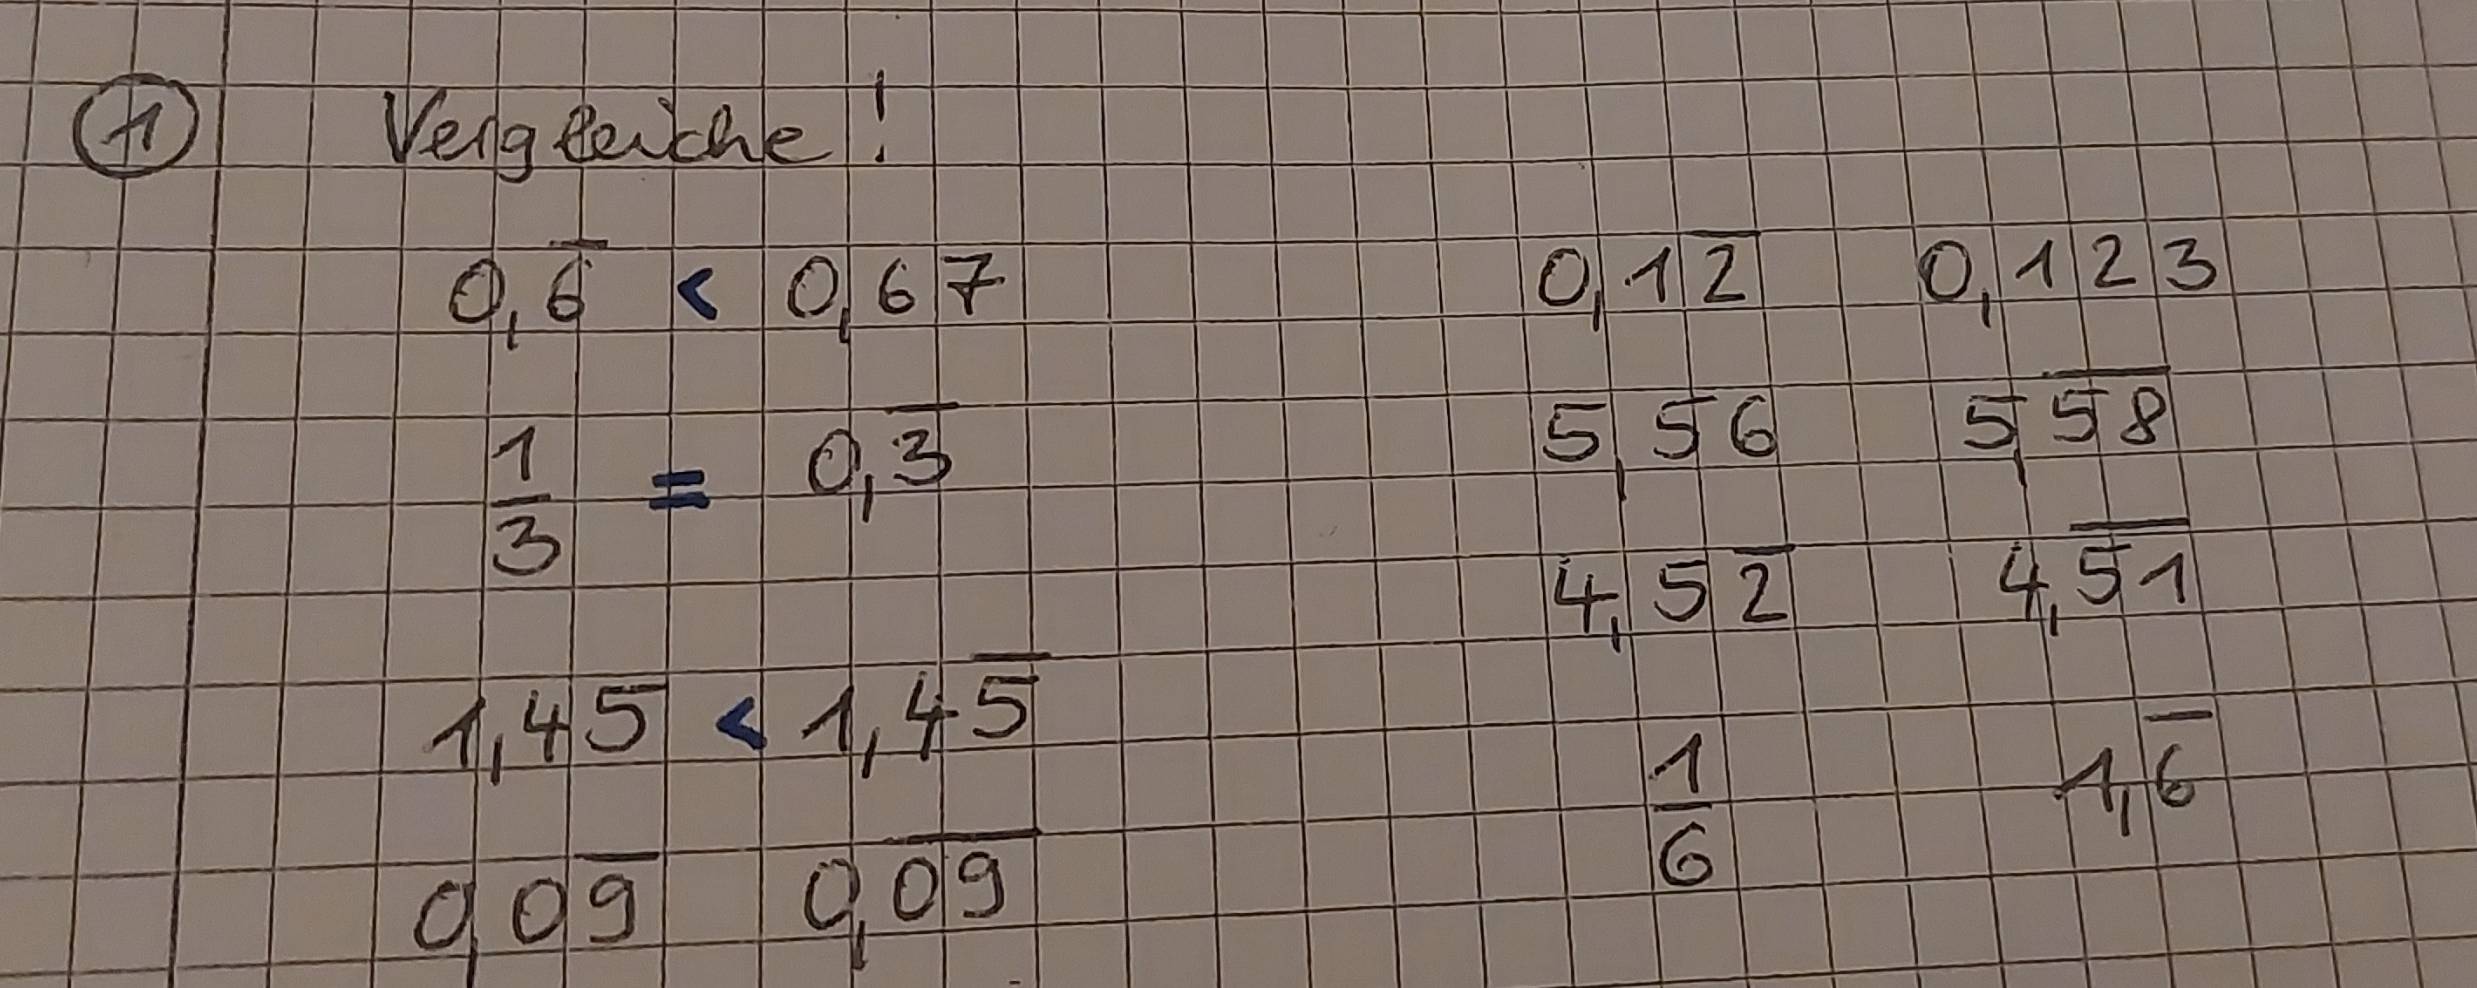 ① Vergleiche!
0,6̅ < 0,67
1/3 = 0,3̅
1,45 < 1,45̅
0,09̅ 0,0̅9̅
0,12̅ 0,123
5,56 5,5̅8̅
4,52̅ 4,5̅1̅
1/6 1,6̅